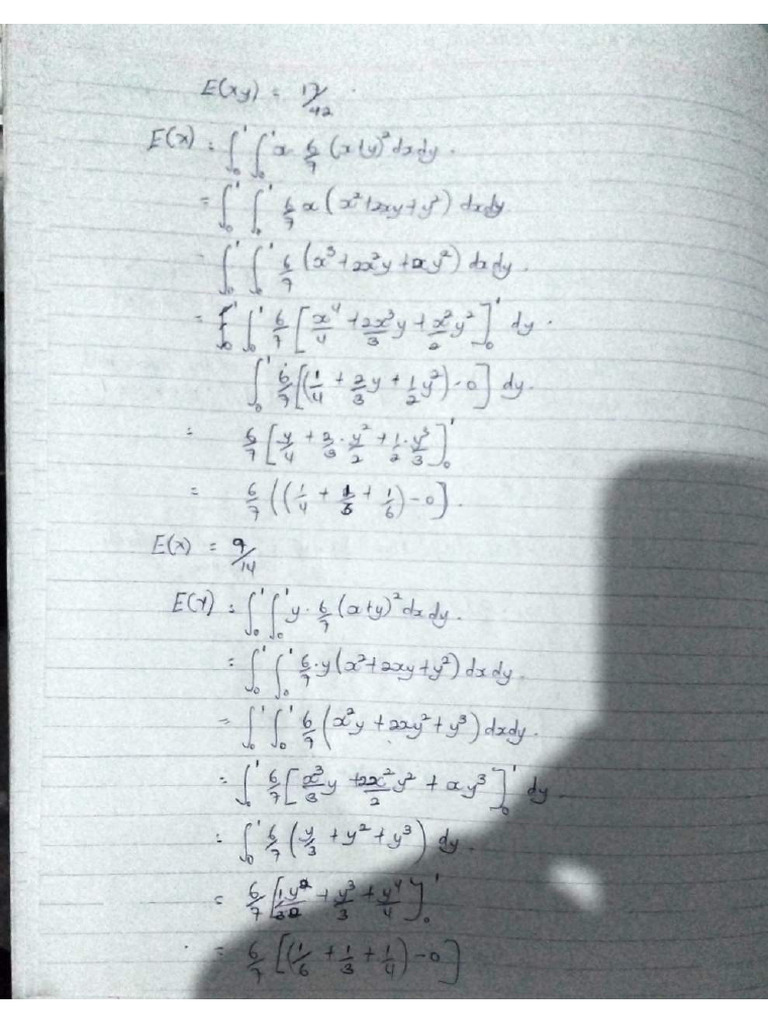 E(xy) = 17/42
E(x) = ∫₀¹ ∫₀¹ x · 6/7 (x+y)² dx dy.
= ∫₀¹ ∫₀¹ 6/7 x (x²+2xy+y²) dx dy
= ∫₀¹ ∫₀¹ 6/7 (x³+2x²y+xy²) dx dy.
= ∫₀¹ ∫₀¹ 6/7 [x⁴/4 + 2x³/3 y + x²/2 y²]₀¹ dy.
∫₀¹ 6/7 [(1/4 + 2/3 y + 1/2 y²) - 0] dy.
= 6/7 [y/4 + 2/3 · y²/2 + 1/2 · y³/3]₀¹
= 6/7 ((1/4 + 1/3 + 1/6) - 0].
E(x) = 9/14
E(Y) = ∫₀¹ ∫₀¹ y · 6/7 (x+y)² dx dy.
= ∫₀¹ ∫₀¹ 6/7 · y (x²+2xy+y²) dx dy.
= ∫₀¹ ∫₀¹ 6/7 (x²y + 2xy² + y³) dx dy.
= ∫₀¹ 6/7 [x³/3 y + 2x²/2 y² + xy³]₀¹ dy
= ∫₀¹ 6/7 (y/3 + y² + y³) dy.
= 6/7 [1/3 y²/2 + y³/3 + y⁴/4]₀¹
= 6/7 [(1/6 + 1/3 + 1/4) - 0]